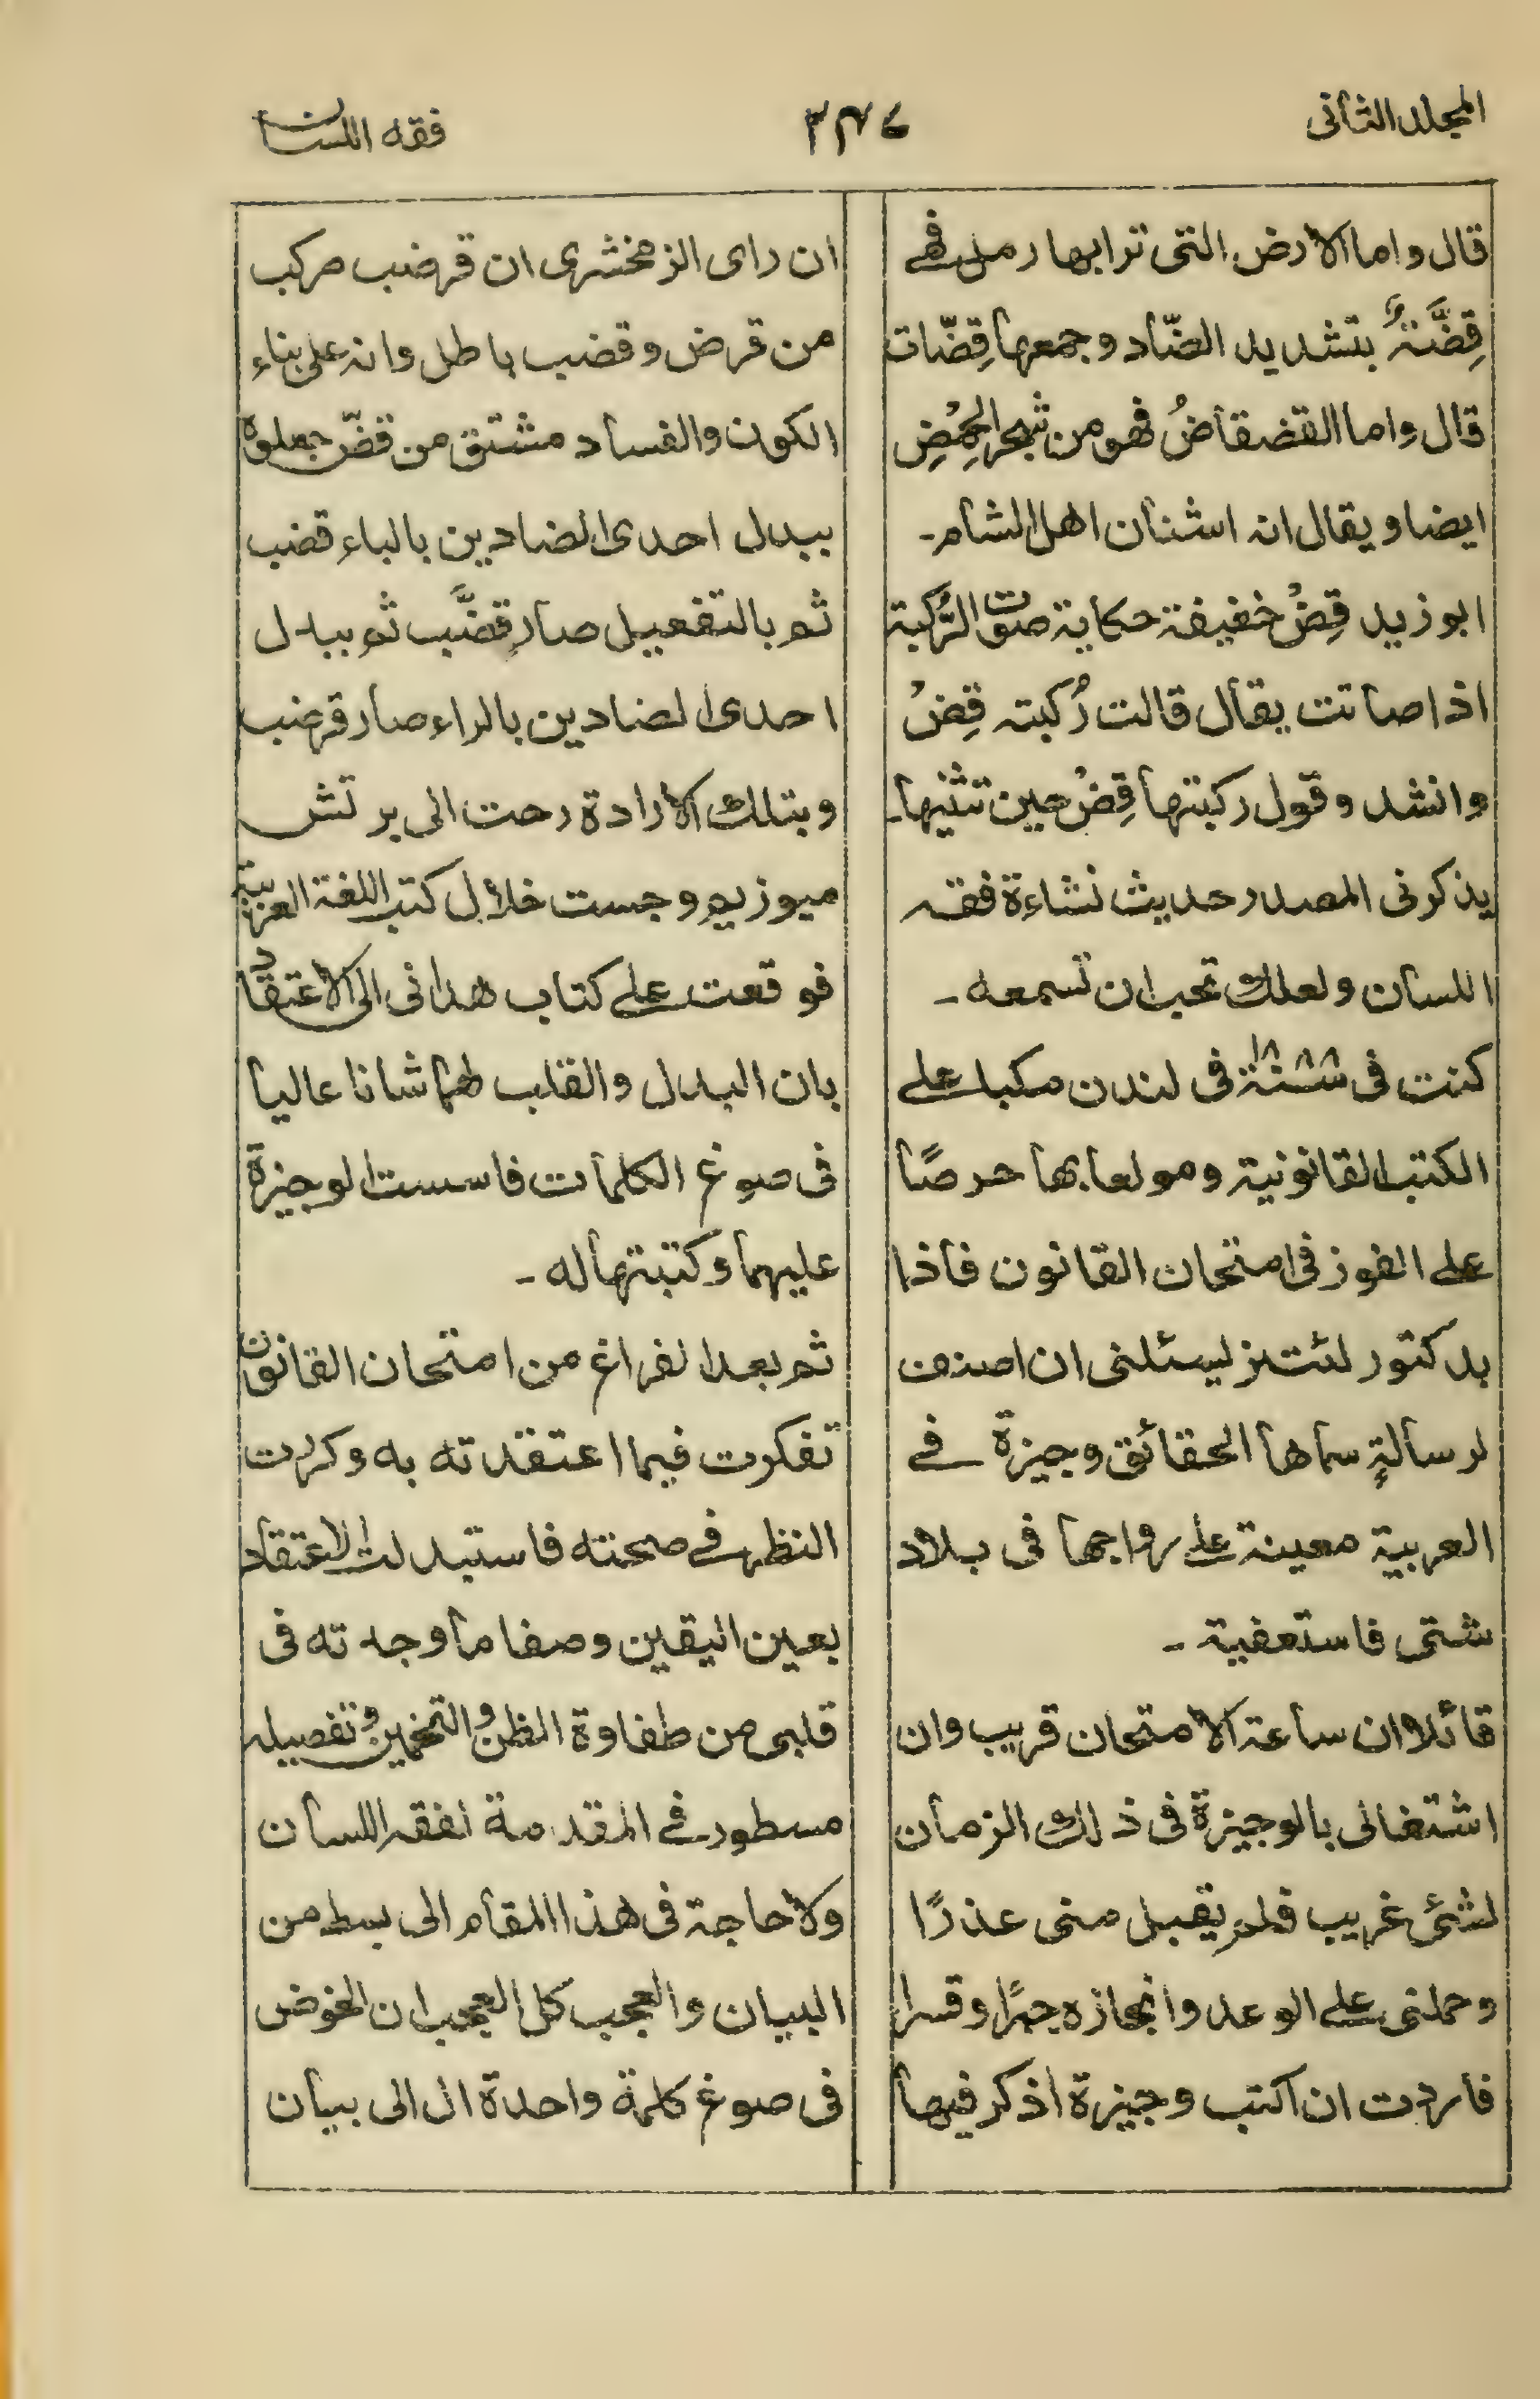 المجلد الثانى
٣٤٧
فقه اللسان
قال واما الارض التى ترابها رمل فهے
قِضَّةٌ بتشديد الضّاد وجمعها قِضّات
قال واما القضقاضُ فهو من شجر الحَمْضِ
ايضا ويقال انه اشنان اهل الشام۔
ابو زيد قِضْ خفيفة حكاية صوت الرُّكبة
اذا صاتت يقال قالت رُكبته قِضْ
وانشد وقول ركبتها قِضْ حين تثنيها۔
يذكرنى المصدر حديث نشاءة فقه
اللسان ولعلك تحب ان تسمعه۔
كنت فى سنة ١٨٨٨ فى لندن مكبا علے
الكتب القانونية ومولعا بها حرصًا
علے الفوز فى امتحان القانون فاذا
بدكتور لئتنر ليسئلنى ان اصنف
لرسالةٍ سماها الحقائق وجيزة فے
العربية معينة علے رواجها فى بلاد
شتى فاستعفية۔
قائلا ان ساعة الامتحان قريب وان
اشتغالى بالوجيزة فى ذلك الزمان
لشئى غريب فلم يقبل منى عذرًا
وحملنى علے الوعد وانجازه جبرًا وقسرا
فاردت ان اكتب وجيزة اذكر فيها
ان راى الزمخشرى ان قرضب مركب
من قرض وقضب باطل وانه على بناء
الكون والفساد مشتق من قضّ جعلوه
ببدل احدى الضادين بالباء قضب
ثم بالتفعيل صار قضَّب ثم ببدل
احدى الضادين بالراء صار قرضب
وبتلك الارادة رحت الى برتش
ميوزيم وجست خلال كتب اللغة العربية
فوقعت علے كتاب هدانى الى الاعتقاد
بان البدل والقلب لهما شانا عاليا
فى صوغ الكلمات فاسست الوجيزة
عليهما وكتبتها له۔
ثم بعد الفراغ من امتحان القانون
تفكرت فيما اعتقدته به وكررت
النظر فے صحته فاستبدلت الاعتقاد
بعين اليقين وصفا ما وجدته فى
قلبى من طفاوة الظن والتخمين وتفصيله
مسطور فے المقدمة لفقه اللسان
ولا حاجة فى هذا المقام الى بسط من
البيان والعجب كل العجب ان الخوض
فى صوغ كلمة واحدة ال الى بيان